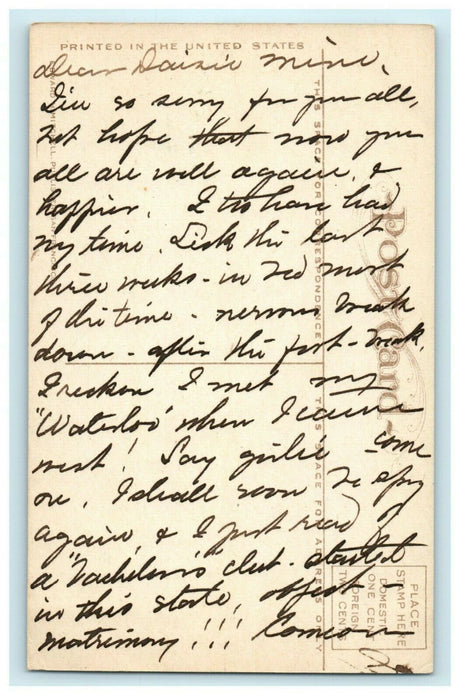 PRINTED IN THE UNITED STATES
dear Daisie mine,
I'm so sorry for you all,
yet hope that now you
all are well again, &
happier. I too have had
my time. Sick the last
three weeks - in bed most
of the time - nervous break
down - after the first - week.
I reckon I met my
"Waterloo" when I came
west! Say girlie come
on, I shall soon be spry
again, & I just read of
a "Bachelor's club - started
in this state, object -
matrimony!!! Come on
Post Card
THIS SPACE FOR CORRESPONDENCE
THIS SPACE FOR ADDRESS ONLY
PLACE
STAMP HERE
DOMESTIC
ONE CENT
FOREIGN
TWO CENTS